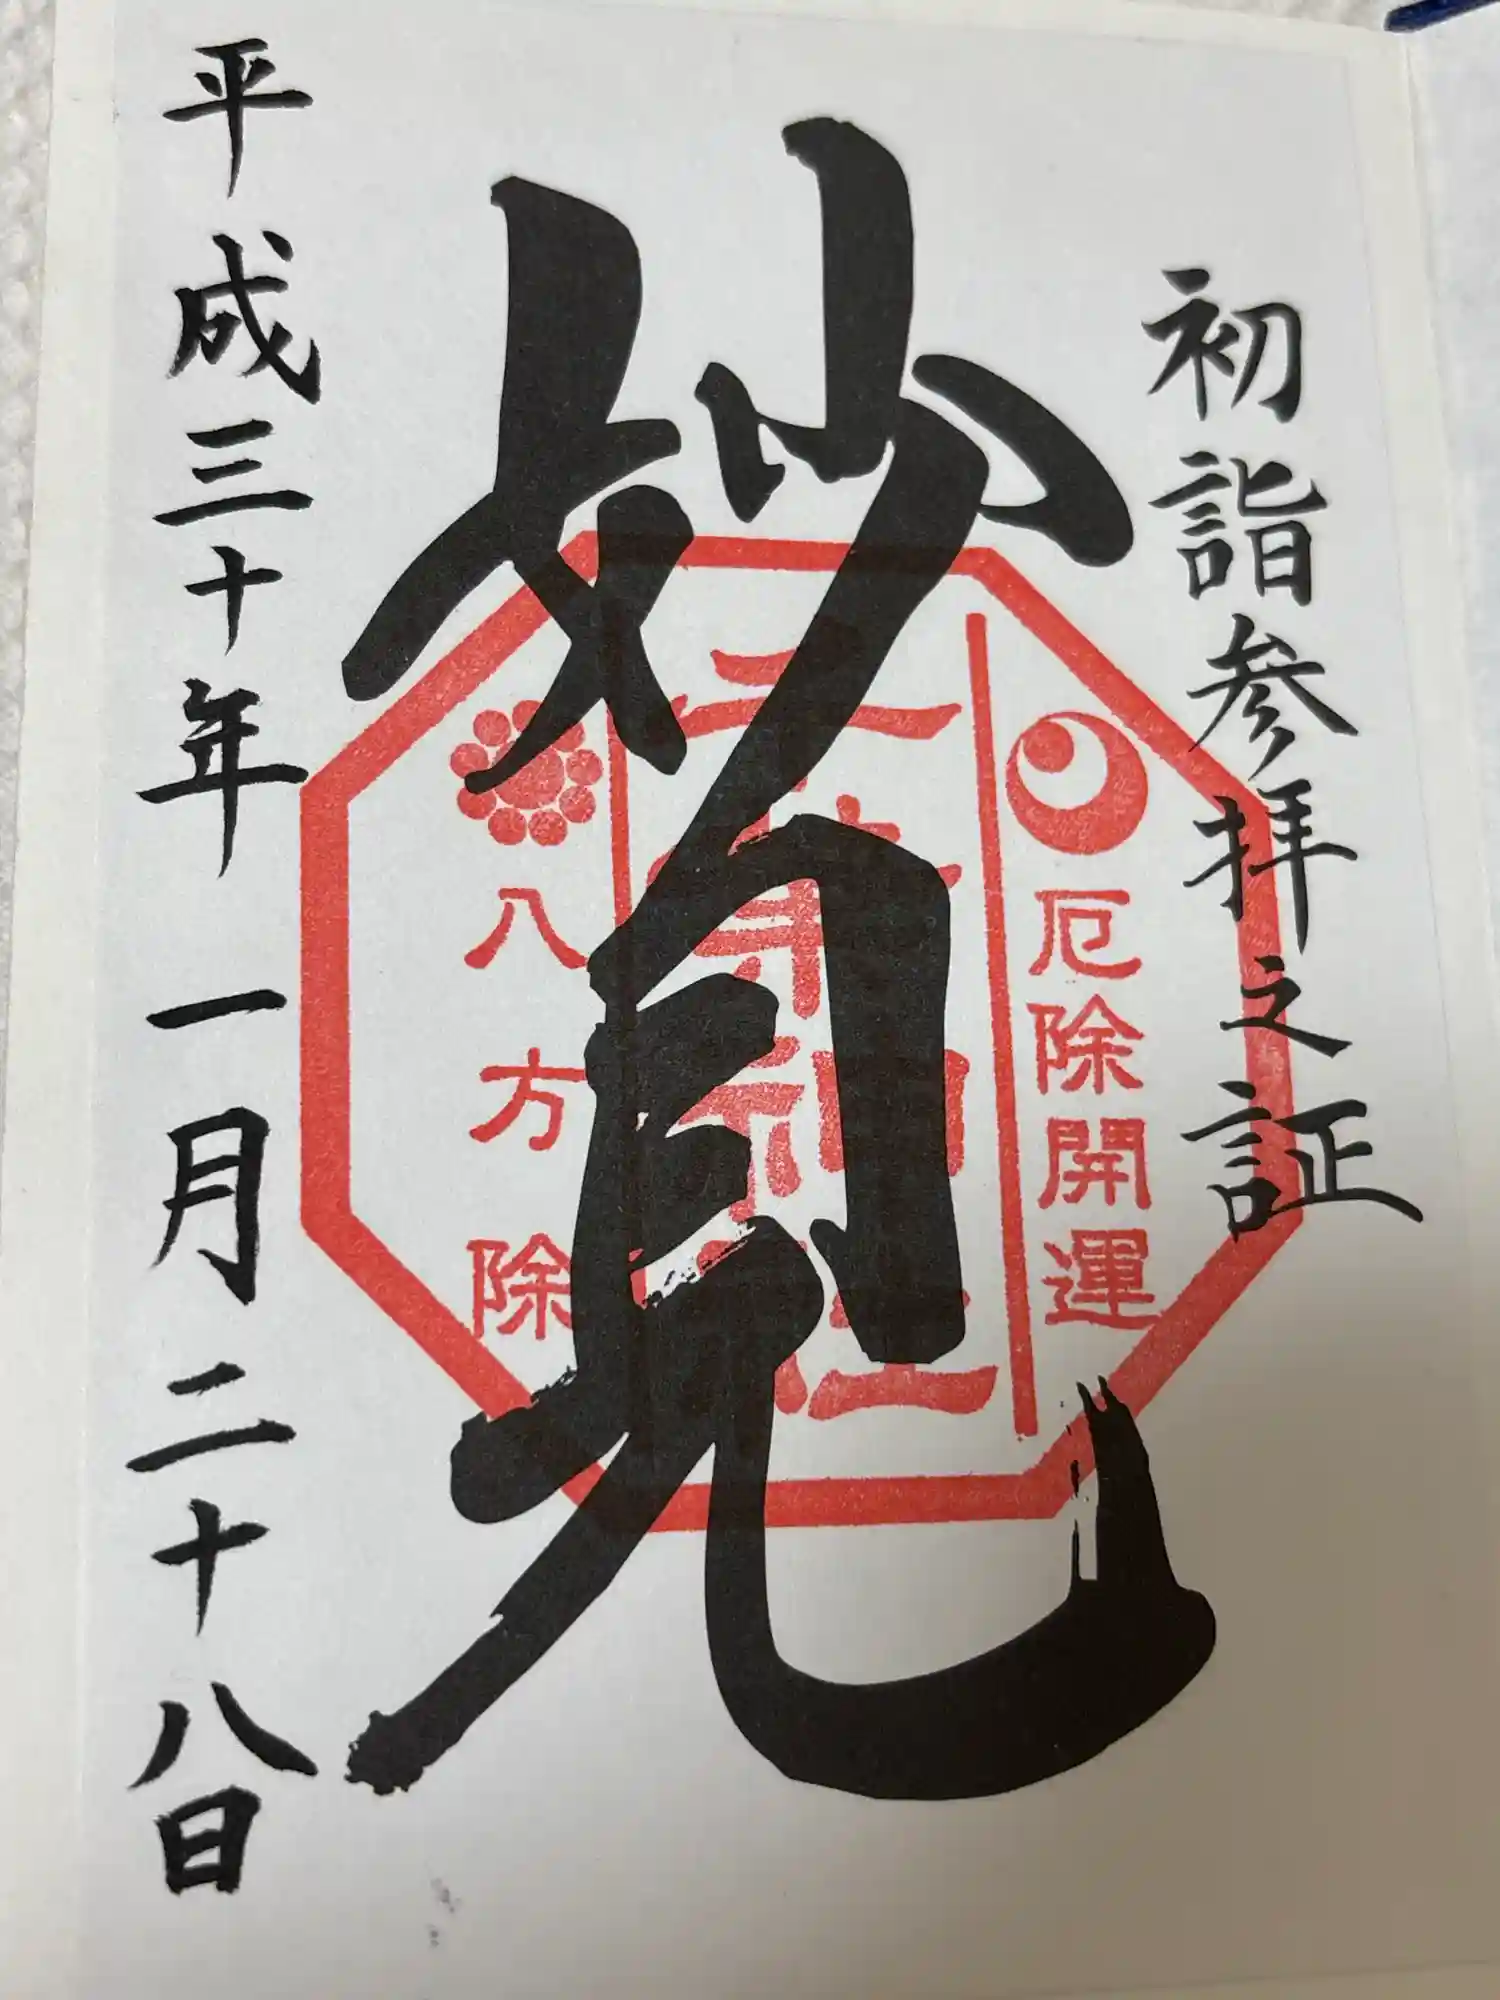 初詣参拝之証
妙見
厄除開運
千葉神社
八方除
平成三十年一月二十八日